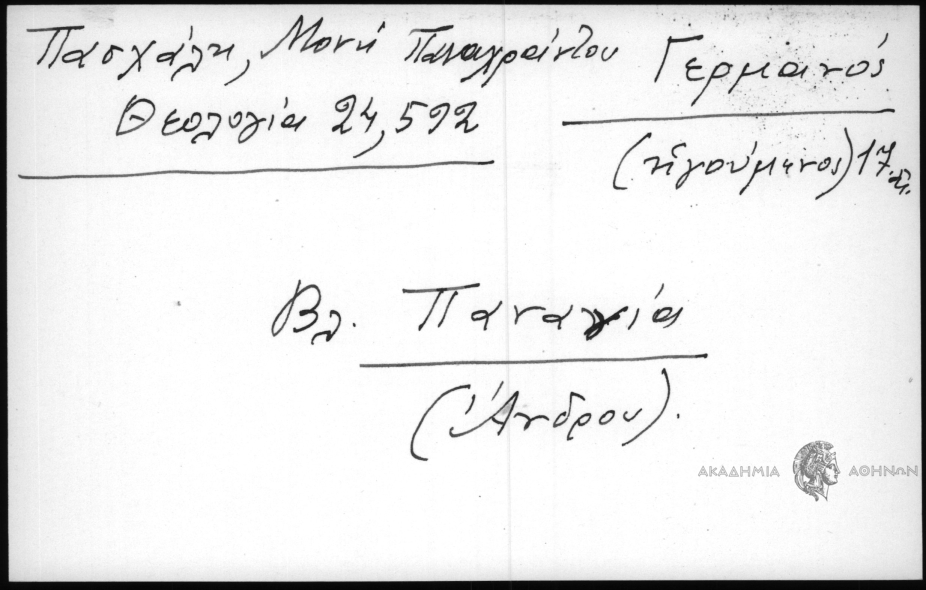 Πασχάλη, Μονή Παναχράντου
Θεολογία 24,592
Γερμανός
(ἡγούμενος) 17.αἰ.
Βλ. Παναγία
(Ἄνδρου).
ΑΚΑΔΗΜΙΑ ΑΘΗΝΩΝ